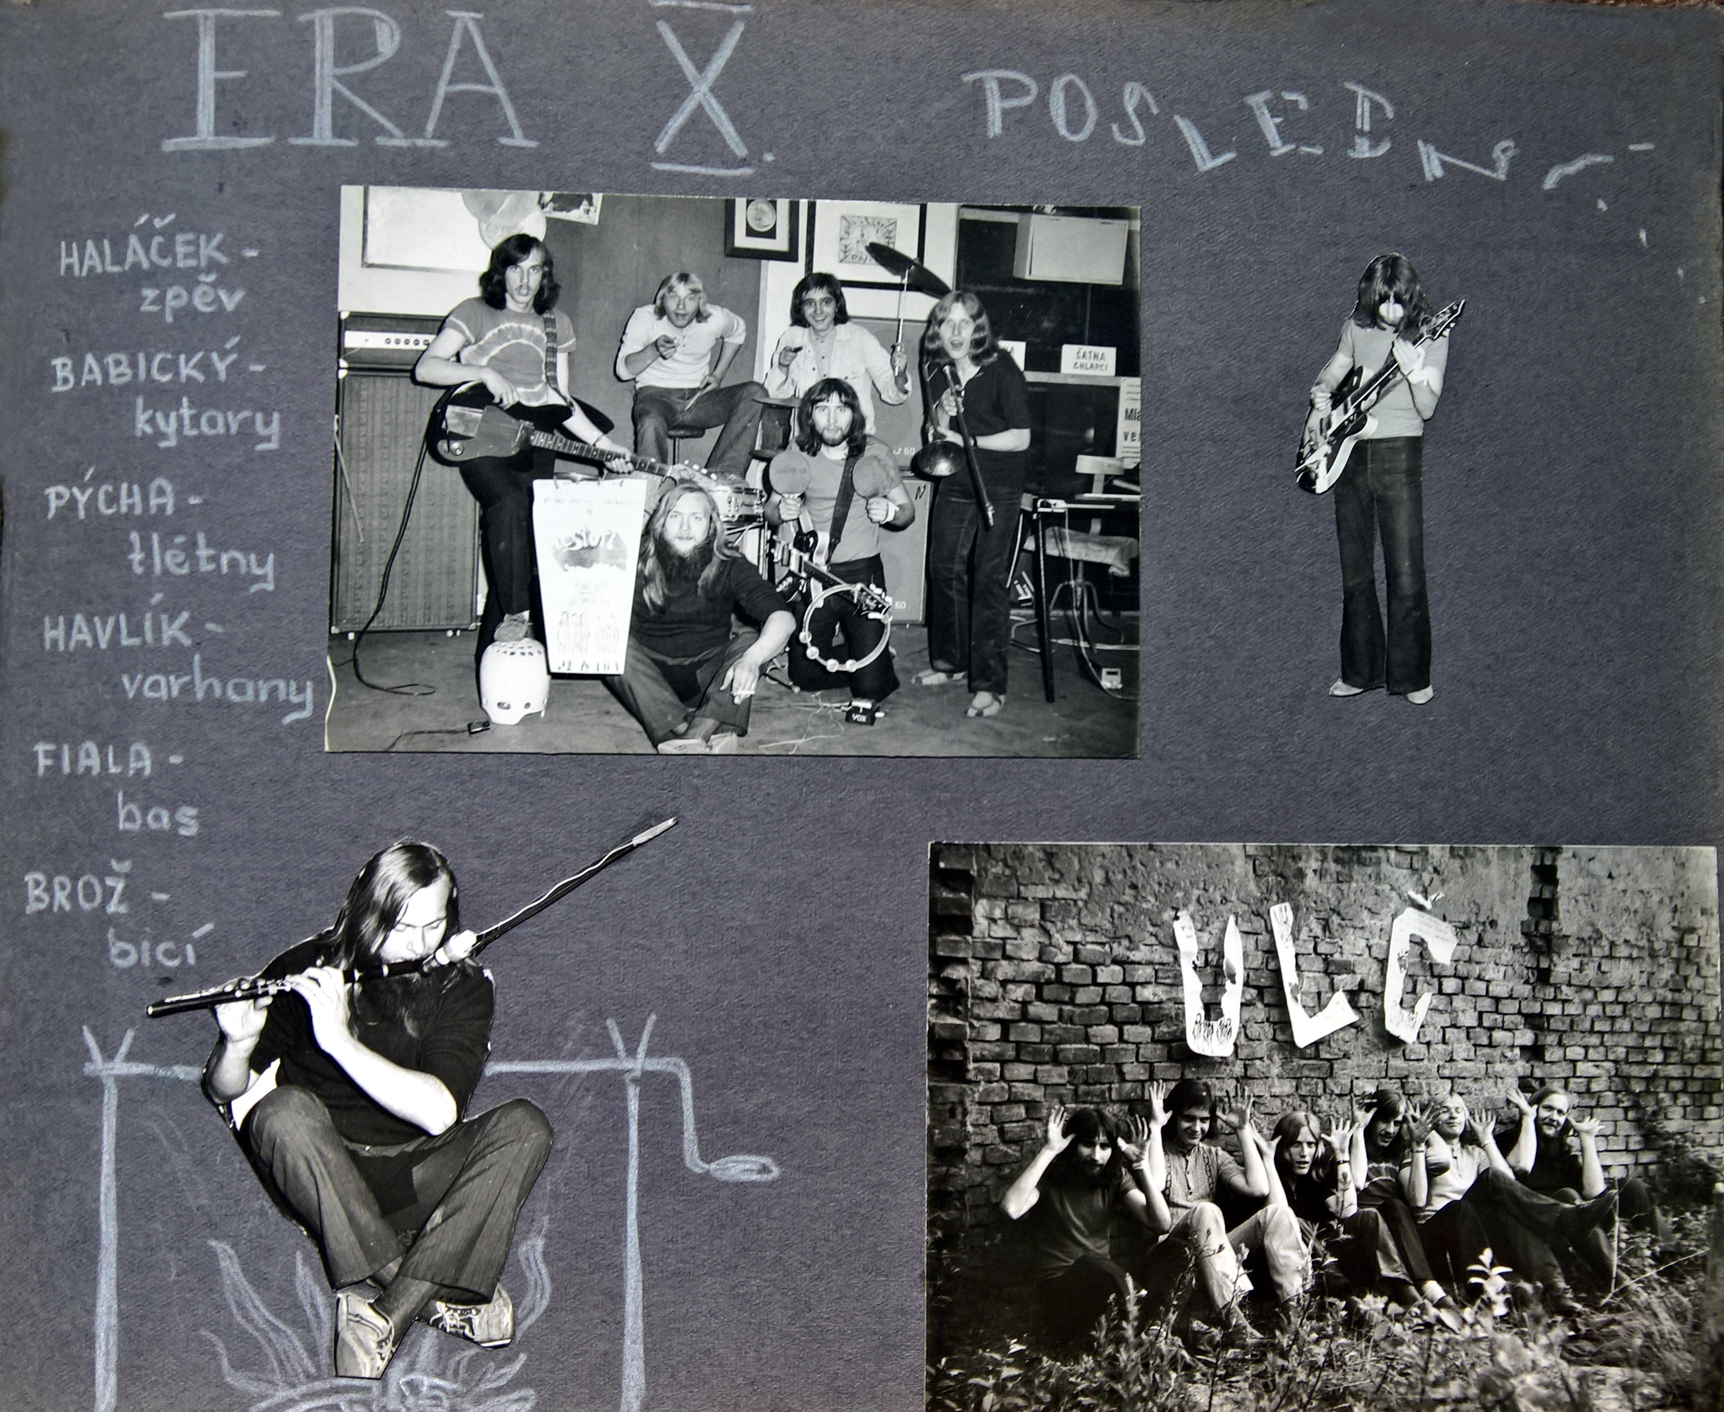 ERA X. POSLEDNÍ
HALÁČEK -
zpěv
BABICKÝ -
kytary
PÝCHA -
flétny
HAVLÍK -
varhany
FIALA -
bas
BROŽ -
bicí
ŠATNA
CHLAPCI
60
60
VOX
ULČ